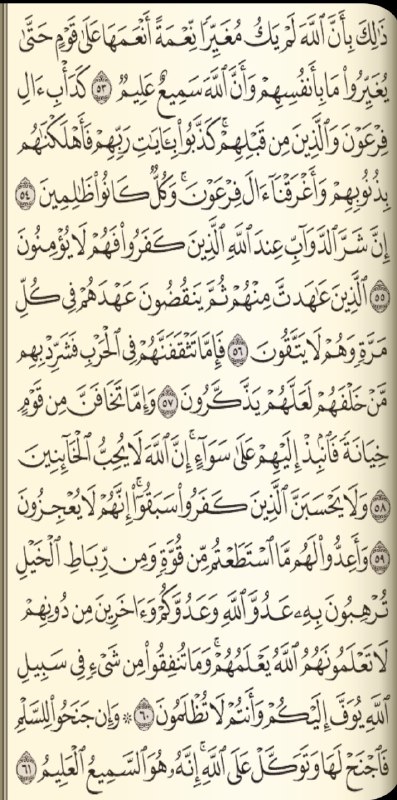 ذَٰلِكَ بِأَنَّ ٱللَّهَ لَمْ يَكُ مُغَيِّرًا نِّعْمَةً أَنْعَمَهَا عَلَىٰ قَوْمٍ حَتَّىٰ
يُغَيِّرُوا۟ مَا بِأَنفُسِهِمْ وَأَنَّ ٱللَّهَ سَمِيعٌ عَلِيمٌ ۝٥٣ كَدَأْبِ ءَالِ
فِرْعَوْنَ وَٱلَّذِينَ مِن قَبْلِهِمْ ۚ كَذَّبُوا۟ بِـَٔايَـٰتِ رَبِّهِمْ فَأَهْلَكْنَـٰهُم
بِذُنُوبِهِمْ وَأَغْرَقْنَآ ءَالَ فِرْعَوْنَ ۚ وَكُلٌّ كَانُوا۟ ظَـٰلِمِينَ ۝٥٤
إِنَّ شَرَّ ٱلدَّوَآبِّ عِندَ ٱللَّهِ ٱلَّذِينَ كَفَرُوا۟ فَهُمْ لَا يُؤْمِنُونَ
۝٥٥ ٱلَّذِينَ عَـٰهَدتَّ مِنْهُمْ ثُمَّ يَنقُضُونَ عَهْدَهُمْ فِى كُلِّ
مَرَّةٍ وَهُمْ لَا يَتَّقُونَ ۝٥٦ فَإِمَّا تَثْقَفَنَّهُمْ فِى ٱلْحَرْبِ فَشَرِّدْ بِهِم
مَّنْ خَلْفَهُمْ لَعَلَّهُمْ يَذَّكَّرُونَ ۝٥٧ وَإِمَّا تَخَافَنَّ مِن قَوْمٍ
خِيَانَةً فَٱنۢبِذْ إِلَيْهِمْ عَلَىٰ سَوَآءٍ ۚ إِنَّ ٱللَّهَ لَا يُحِبُّ ٱلْخَآئِنِينَ
۝٥٨ وَلَا يَحْسَبَنَّ ٱلَّذِينَ كَفَرُوا۟ سَبَقُوٓا۟ ۚ إِنَّهُمْ لَا يُعْجِزُونَ
۝٥٩ وَأَعِدُّوا۟ لَهُم مَّا ٱسْتَطَعْتُم مِّن قُوَّةٍ وَمِن رِّبَاطِ ٱلْخَيْلِ
تُرْهِبُونَ بِهِۦ عَدُوَّ ٱللَّهِ وَعَدُوَّكُمْ وَءَاخَرِينَ مِن دُونِهِمْ
لَا تَعْلَمُونَهُمُ ٱللَّهُ يَعْلَمُهُمْ ۚ وَمَا تُنفِقُوا۟ مِن شَىْءٍ فِى سَبِيلِ
ٱللَّهِ يُوَفَّ إِلَيْكُمْ وَأَنتُمْ لَا تُظْلَمُونَ ۝٦٠ ۞ وَإِن جَنَحُوا۟ لِلسَّلْمِ
فَٱجْنَحْ لَهَا وَتَوَكَّلْ عَلَى ٱللَّهِ ۚ إِنَّهُۥ هُوَ ٱلسَّمِيعُ ٱلْعَلِيمُ ۝٦١